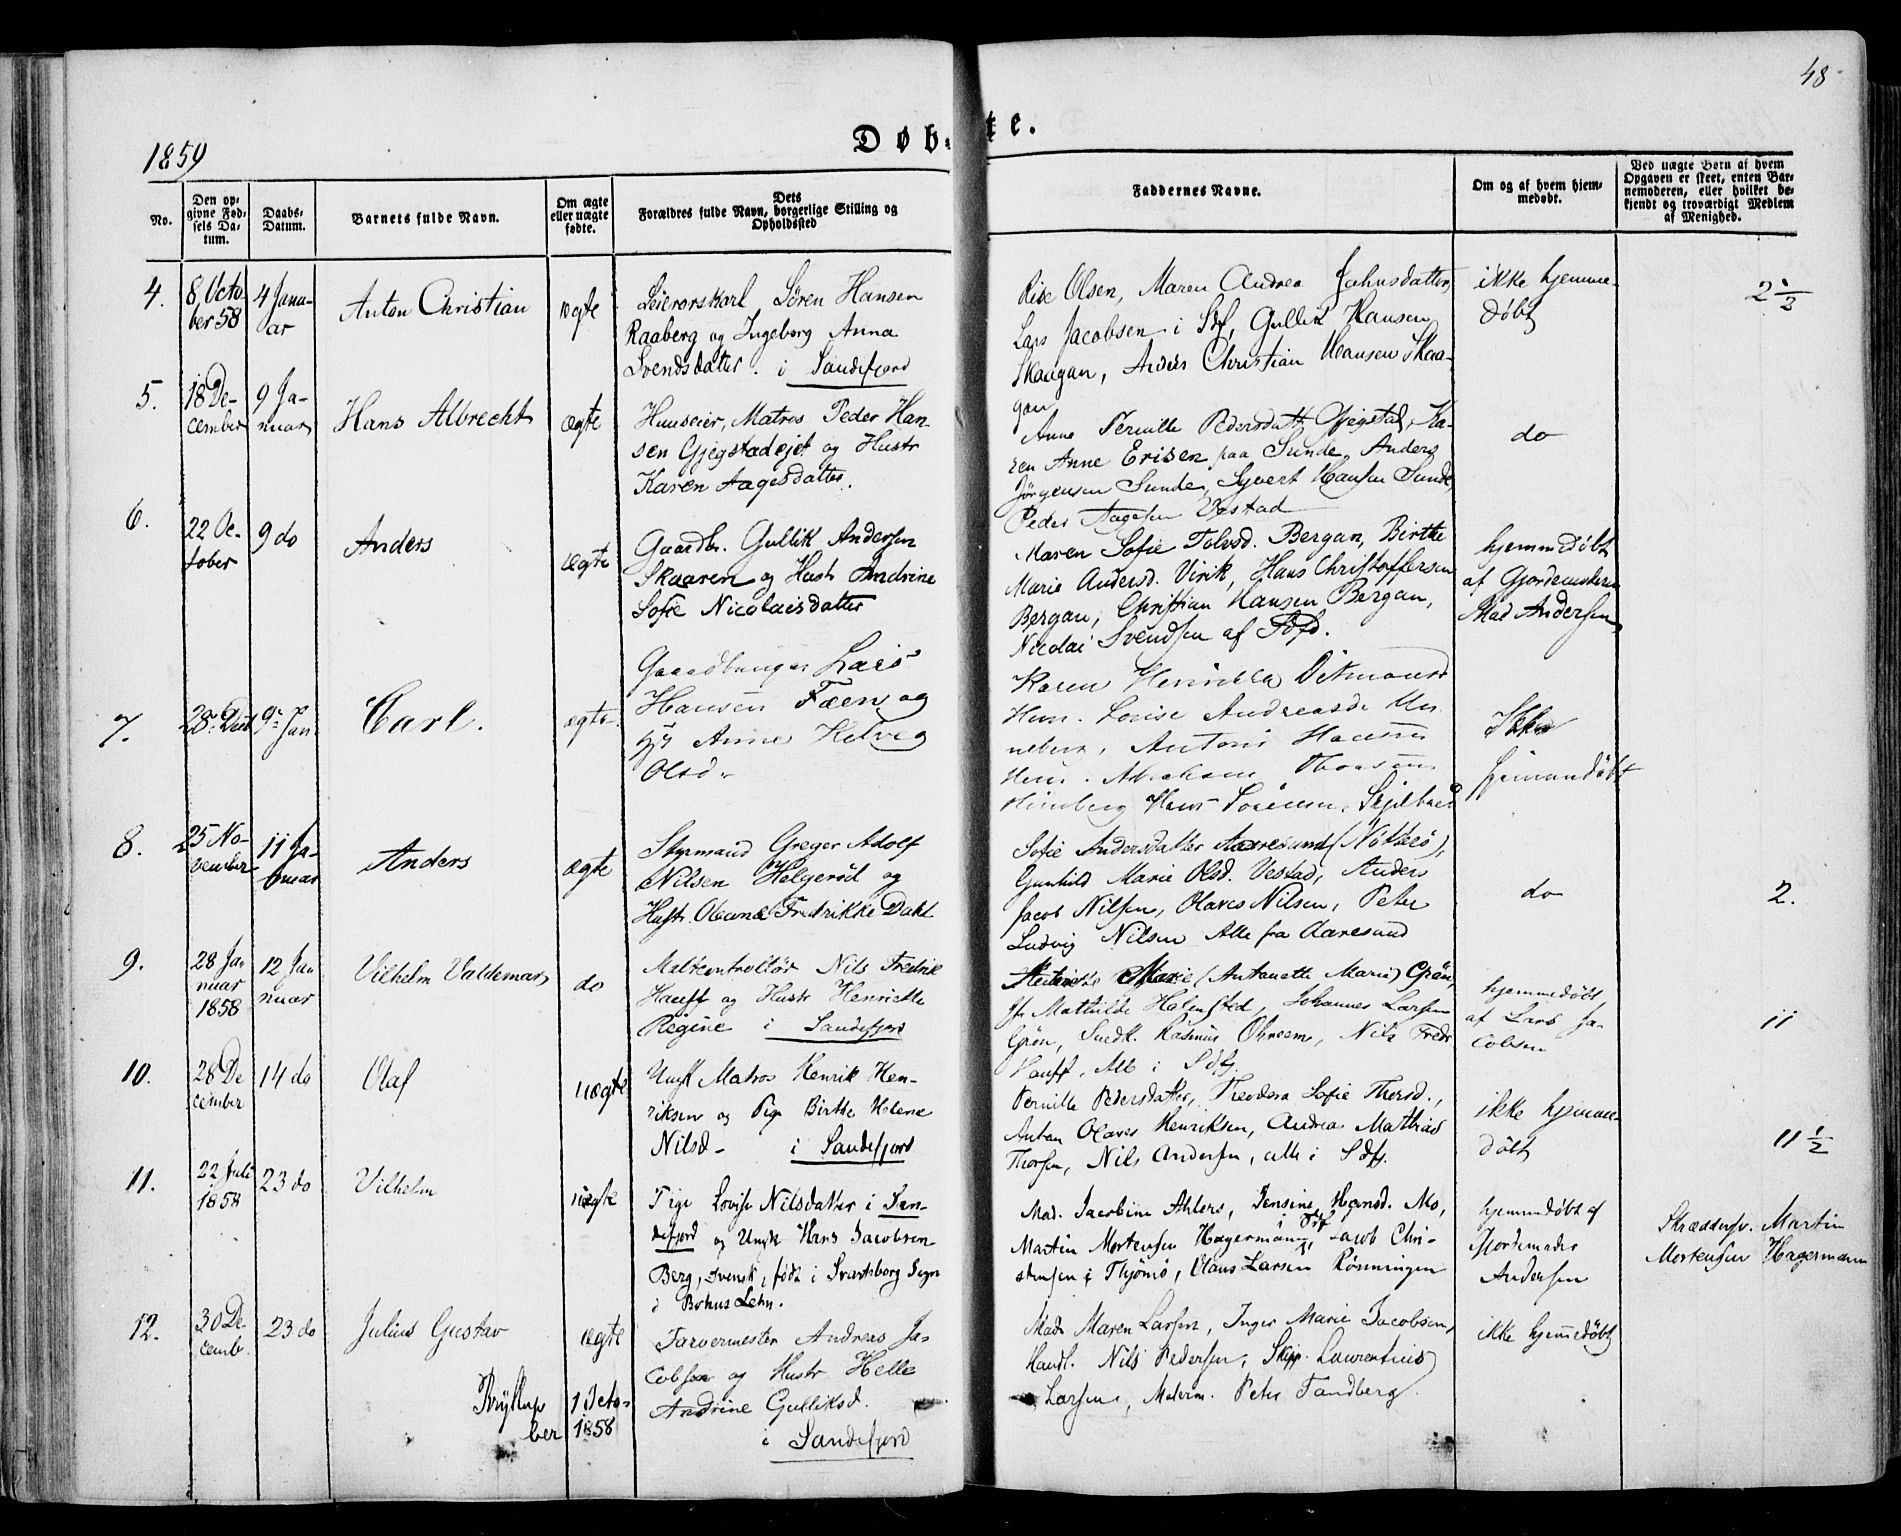 48
1859
Døbte.
No.
Den opgivne Fødsels Datum.
Daabs-Datum.
Barnets fulde Navn.
Om ægte eller uægte fødte.
Dets Forældres fulde Navn, borgerlige Stilling og Opholdssted
Faddernes Navne.
Om og af hvem hjemmedøbt.
Ved uægte Børn af hvem Opgaven er skeet, enten Barnemoderen, eller hvilket bekjendt og troværdigt Medlem af Menighed.
4.
8 Octo-
ber 58
4 Janu-
ar
Anton Christian
ægte
Søren Hansen
Raaberg og Ingeborg Anna
Svendsdatter. i Sandefjord
Olsen, Maren Andrea Jahnsdatter,
Lars Jacobsen i Sdf, Gullik Hansen
Skaagan, Anders Christian Hansen Skaa-
gan
ikke hjemme-
døbt
2 1/2
5.
18 De-
cember
9 Ja-
nuar
Hans Albrecht
ægte
Huuseier, Matros Peder Han-
sen Gjegstadejet og Hustr
Karen Aagesdatter.
Anne Pernille Pedersdatt Gjegstad, Ka-
ren Anne paa Sunde, Anders
Jørgensen Sunde, Syvert Hansen Sunde,
Peder Aagesen Vestad
do
6.
22 Oc-
tober
9 do
Anders
ægte
Gaardbr. Gullik Andersen
Skaaren og Hustr Andrine
Sofie Nicolaisdatter
Maren Sofie Tolvsd. Bergan, Birthe
Marie Andersd. Virik, Hans Christoffersen
Bergan, Christian Hansen Bergan,
Nicolai Svendsen af
hjemmedøbt
af Gjordemoderen
Mad Andersen
7.
28 Decb
9 Jan
Carl.
ægte.
Gaardbruger Lars
Hansen Fæen og
Anne Helvig
Olsd.
Karen Ditmansd
Louise Andreasd.
Anton Hansen
Abraham
Himberg Hans Sørensen,
Ikke
hjemmedøbt
8.
25 No-
vember
11 Ja-
nuar
Anders
ægte
Styrmand Greger Adolf
Nilsen Helgerød og
Hustr. Fredrikke Dahl
Sofie Andersdatter Aaresund (Nøtterø),
Gunhild Marie Olsd. Vestad, Anders
Jacob Nilsen, Olaves Nilsen, Peter
Ludvig Nilsen Alle fra Aaresund
do
2.
9.
28 Ja
nuar
1858
12 Jan
nuar
Vilhelm Valdemar
do
Maltcontrollør Nils Fredrik
Hauff og Hustr Henriette
Regine i Sandefjord
Marie (Antonette Marie) Grøn,
Jfr Mathilde Johannes Larsen
Grøn, Snedk. Rasmus Nils Fredr
Hauff, Alle i Sdfj.
hjemmedøbt
af Lars Ja-
cobsen
11
10.
28 De
cember
14 do
Olaf
uægte
Ungk Matros Henrik Hen-
riksen og Pige Birthe Helene
Nilsd- i Sandefjord
Pernille Pedersdatter, Theodora Sofie Thorsd.,
Anton Olaves Henriksen, Andrea Mathias
Thorsen, Nils Andersen, alle i Sdfj.
ikke hjemme-
døbt
11 1/2
11.
22 Juli
1858
23 do
Vilhelm
uægte
Pige Lovise Nilsdatter i San-
defjord og Ungk Hans Jacobsen
Berg, svensk, født i Svarteborg Sogn
i Bohus Lehn.
Mad. Jacobine Ahlers, Jensine Hansd. Mo,
Martin Mortensen Hagermann i Sdf, Jacob Chri-
stensen i Thjømø, Claus Larsen Rønningen
hjemmedøbt af
Jordemoder
Andersen
Skræddersv. Martin
Mortensen Hagermann
12.
30 De
cemb.
23 do
Julius Gustav
ægte
Farvermester Andreas Ja-
cobsen og Hustr Helle
Andrine Gulliksd.
i Sandefjord
Bryllup 1 Octo-
ber 1858
Mad. Maren Larsen, Inger Marie Jacobsen,
Handl. Nils Pedersen, Skipp. Laurentius
Larsen, Peter Sandberg.
ikke hjemmedøbt